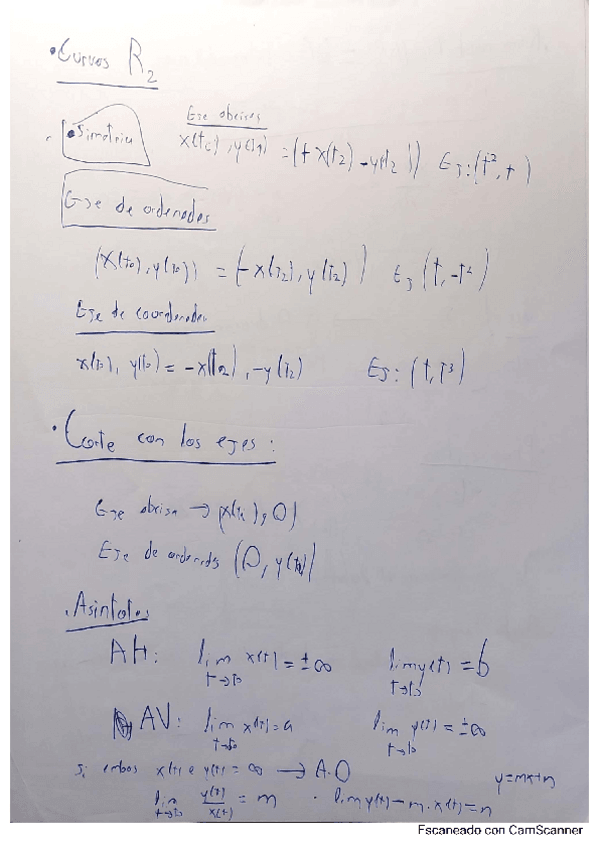 • Curvas R2
• Simetria
Eje abcisas
x(t0), y(t0) = (+x(t2) -y(t2)) Ej: (t², t)
Eje de ordenadas
(x(t0), y(t0)) = (-x(t2), y(t2)) Ej (t, -t²)
Eje de coordenadas
x(t0), y(t0) = -x(t2), -y(t2) Ej: (t, t³)
• Corte con los ejes:
Eje abcisa → (x(t0), 0)
Eje de ordenadas (0, y(t0))
• Asintotas
AH: lim t→t0 x(t) = ±∞ lim t→t0 y(t) = b
AV: lim t→t0 x(t) = a lim t→t0 y(t) = ±∞
Si ambos x(t) e y(t) = ∞ → A.O y=mx+n
lim t→t0 y(t)/x(t) = m • lim y(t) - m.x(t) = n
Escaneado con CamScanner